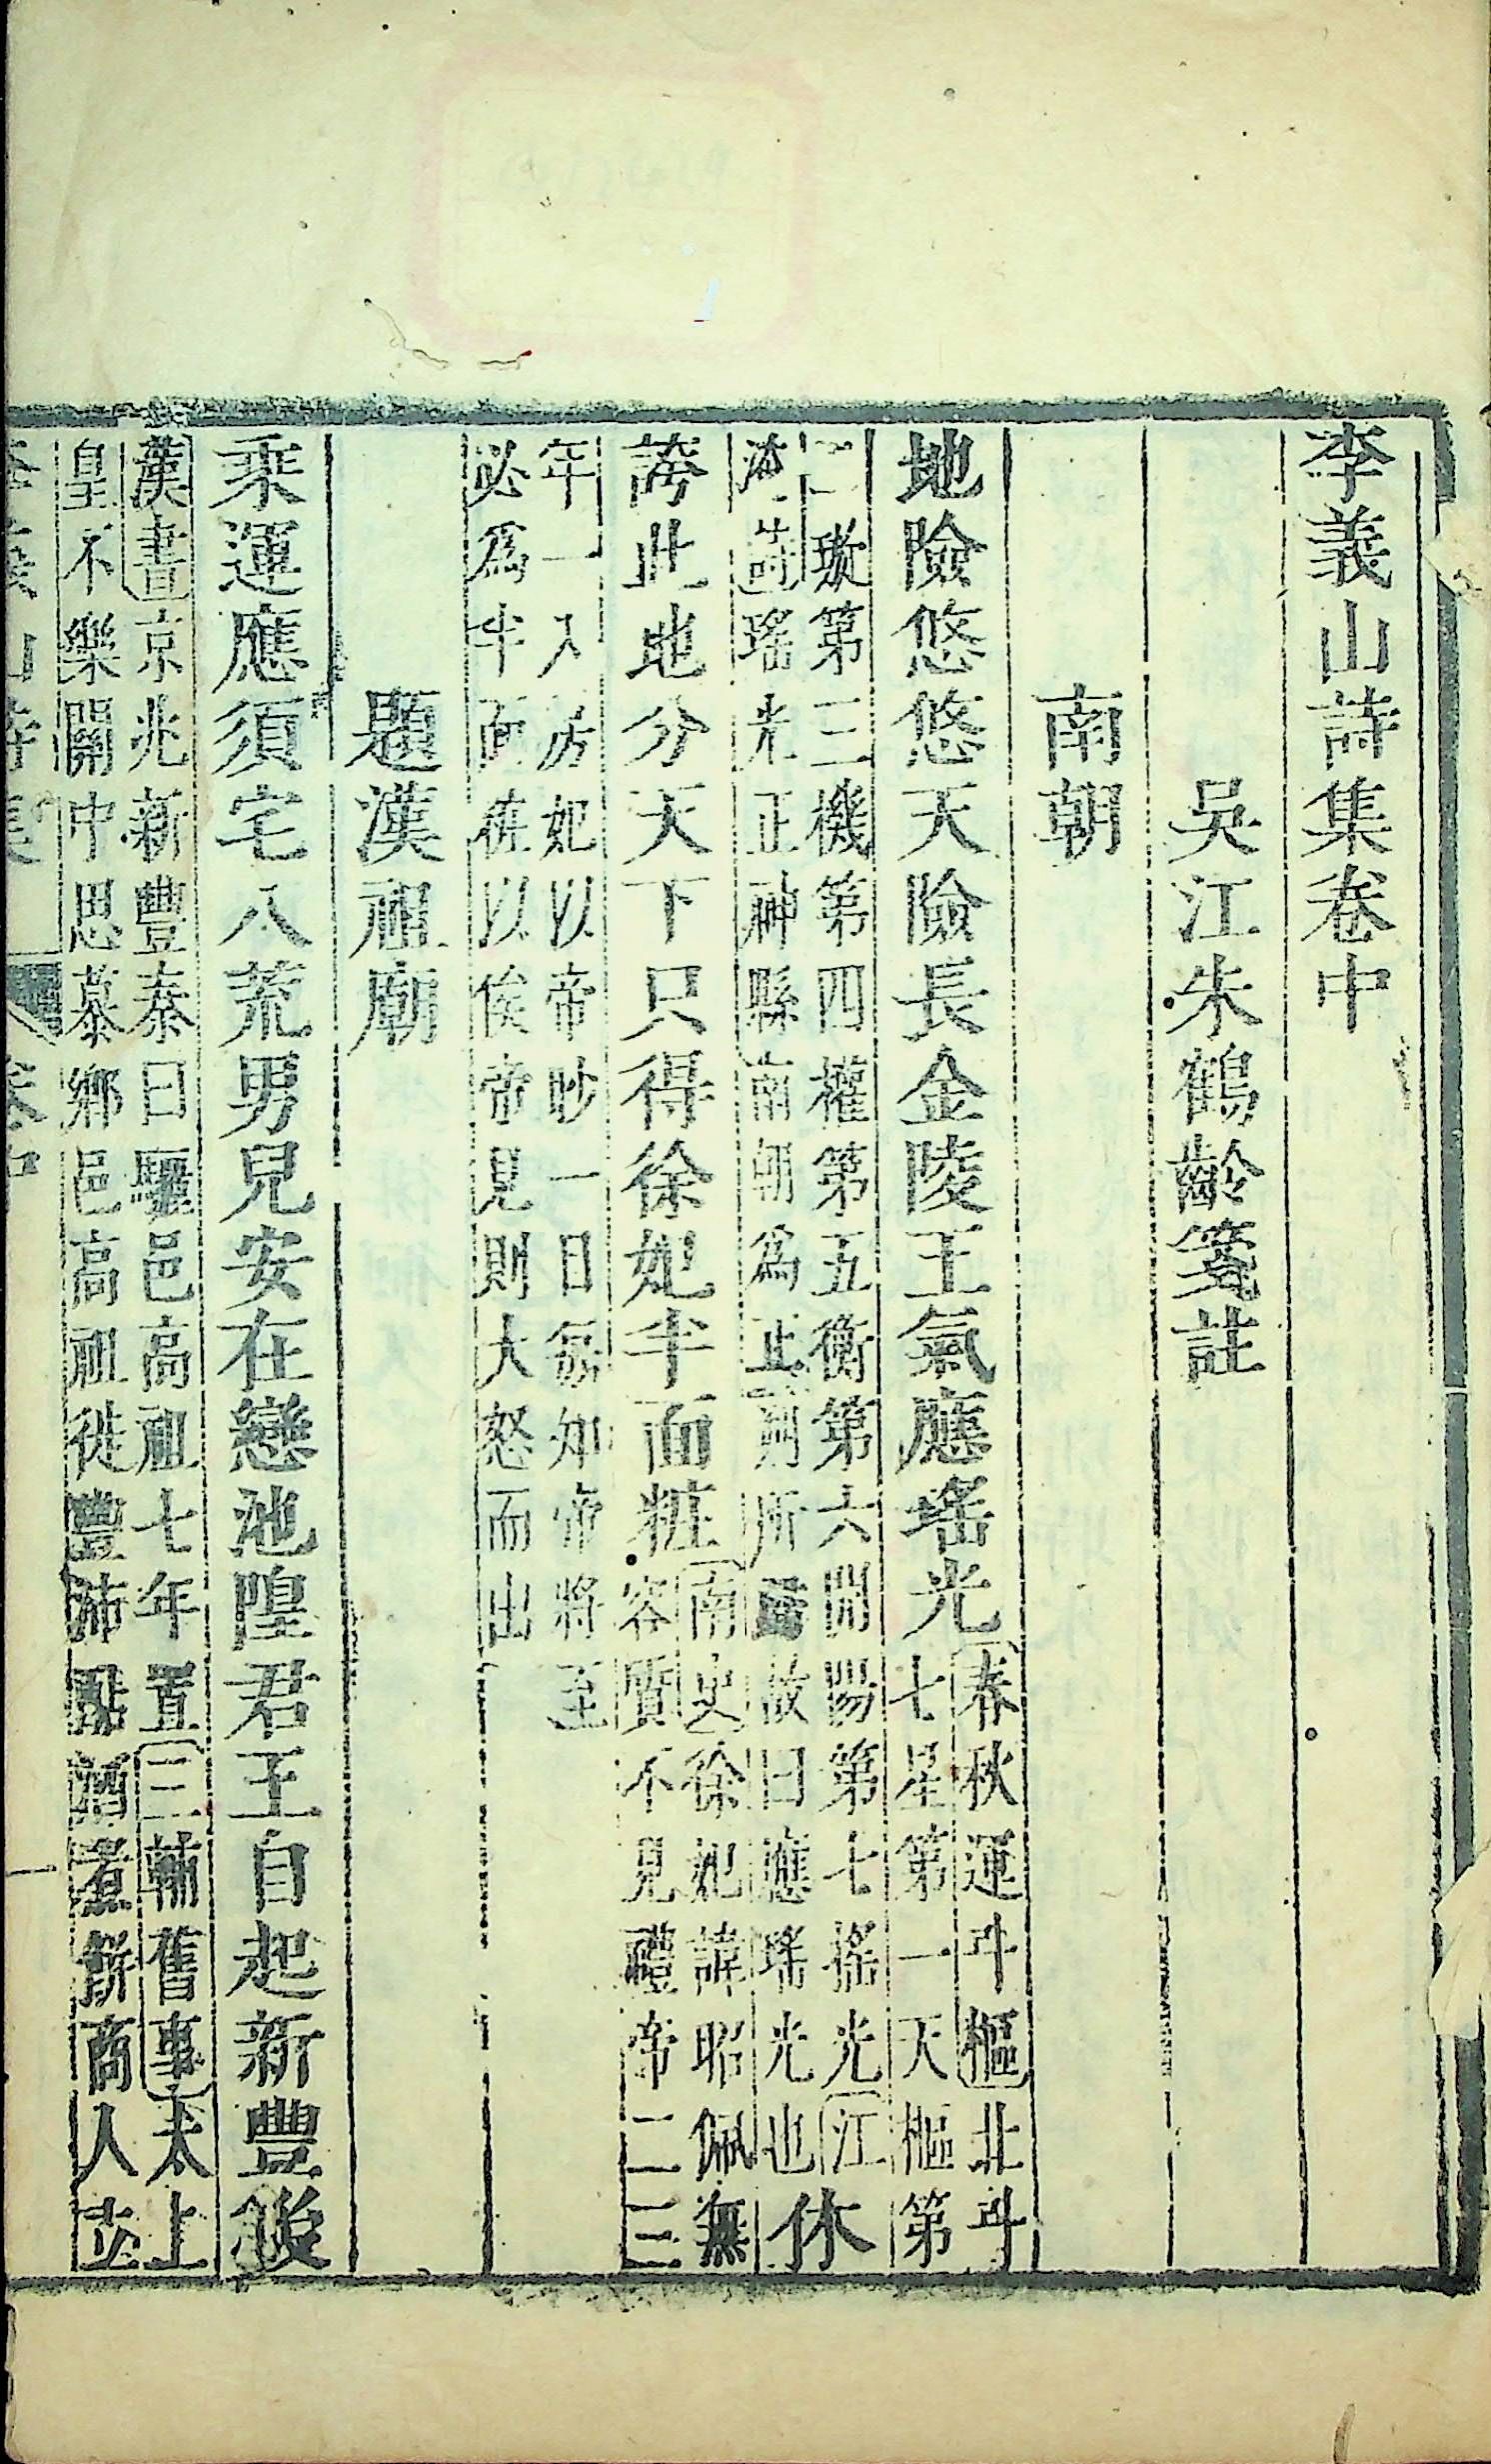 李義山詩集卷中
吳江朱鶴齡箋註
南朝
地險悠悠天險長金陵王氣應瑤光
春秋運斗樞北斗
七星第一天樞第
二璇第三機第四權第五衡第六開陽第七搖光江
淹詩瑤光正神縣南朝爲正朔所歸故曰應瑤光也
休
誇此地分天下只得徐妃半面粧
南史徐妃諱昭佩無
容質不見禮帝二三
年一入房妃以帝眇一日每知帝將至
必爲半面粧以俟帝見則大怒而出
題漢祖廟
乘運應須宅八荒男兒安在戀池隍君王自起新豐後
漢書京兆新豐秦曰驪邑高祖七年置三輔舊事太上
皇不樂關中思慕鄉邑高祖徙豐沛酤酒煮餅商人立
李義山詩集 卷中 一